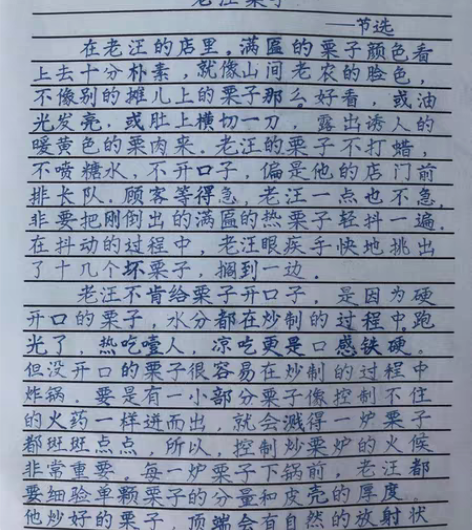 老汪栗子
——节选
在老汪的店里，满匾的栗子颜色看
上去十分朴素，就像山间老农的脸色，
不像别的摊儿上的栗子那么好看，或油
光发亮，或肚上横切一刀，露出诱人的
暖黄色的栗肉来。老汪的栗子不打蜡，
不喷糖水，不开口子，偏是他的店门前
排长队。顾客等得急，老汪一点也不急，
非要把刚倒出的满匾的热栗子轻抖一遍，
在抖动的过程中，老汪眼疾手快地挑出
了十几个坏栗子，搁到一边。
老汪不肯给栗子开口子，是因为硬
开口的栗子，水分都在炒制的过程中跑
光了，热吃噎人，凉吃更是口感铁硬。
但没开口的栗子很容易在炒制的过程中
炸锅。要是有一小部分栗子像控制不住
的火药一样迸而出，就会溅得一炉栗子
都斑斑点点，所以，控制炒栗炉的火候
非常重要。每一炉栗子下锅前，老汪都
要细验单颗栗子的分量和皮壳的厚度。
他炒好的栗子，顶端会有自然的放射状